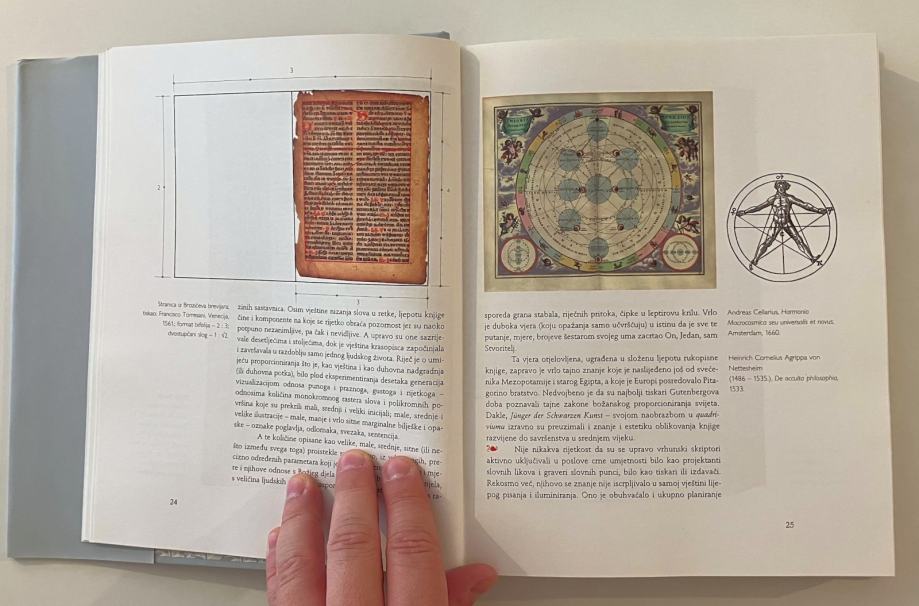 3
2
4
3
Stranica iz Brozićeva brevijara,
tiskao Francisco Torresani, Venecija,
1561; format bifolija – 2 : 3;
dvostupčani slog – 1 : √2.
zinih sastavnica. Osim vještine nizanja slova u retke, ljepotu knjige
čine i komponente na koje se rijetko obraća pozornost jer su naoko
potpuno nezanimljive, pa čak i nevidljive. A upravo su one sazrije-
vale desetljećima i stoljećima, dok je vještina krasopisca započinjala
i završavala u razdoblju samo jednog ljudskog života. Riječ je o umi-
jeću proporcioniranja što je, kao vještina i kao duhovna nadgradnja
(ili duhovna potka), bilo plod eksperimentiranja desetaka generacija
vizualizacijom odnosa punoga i praznoga, gustoga i rijetkoga –
odnosima količina monokromnog rastera slova i polikromnih po-
vršina koje su prekrili mali, srednji i veliki inicijali; male, srednje i
velike ilustracije – male, manje i vrlo sitne marginalne bilješke i opa-
ske – oznake poglavlja, odlomaka, svezaka, sentencija.
A te količine opisane kao velike, male, srednje, sitne (ili ne-
što između svega toga) proistekle iz pre-
cizno određenih parametara koji je mje-
re i njihove odnose s Božjeg djela
s veličina ljudskih ra-
24
sporeda grana stabala, riječnih pritoka, čipke u leptirovu krilu. Vrlo
je duboka vjera (koju opažanja samo učvršćuju) u istinu da je sve te
putanje, mjere, brojeve šestarom svojeg uma zacrtao On, Jedan, sam
Stvoritelj.
Ta vjera otjelovljena, ugrađena u složenu ljepotu rukopisne
knjige, zapravo je vrlo tajno znanje koje je naslijeđeno još od sveće-
nika Mezopotamije i starog Egipta, a koje je Europi posredovalo Pita-
gorino bratstvo. Nedvojbeno je da su najbolji tiskari Gutenbergova
doba poznavali tajne zakone božanskog proporcioniranja svijeta.
Dakle, Jünger der Schwarzen Kunst – svojom naobrazbom u quadri-
viumu izravno su preuzimali i znanje i estetiku oblikovanja knjige
razvijene do savršenstva u srednjem vijeku.
Nije nikakva rijetkost da su se upravo vrhunski skriptori
aktivno uključivali u poslove crne umjetnosti bilo kao projektanti
slovnih likova i graveri slovnih punci, bilo kao tiskari ili izdavači.
Rekosmo već, njihovo se znanje nije iscrpljivalo u samoj vještini lije-
pog pisanja i iluminiranja. Ono je obuhvaćalo i ukupno planiranje
Andreas Cellarius, Harmonia
Macrocosmica seu universalis et novus,
Amsterdam, 1660.
Heinrich Cornelius Agrippa von
Nettesheim
(1486 – 1535.), De occulta philosophia,
1533.
25